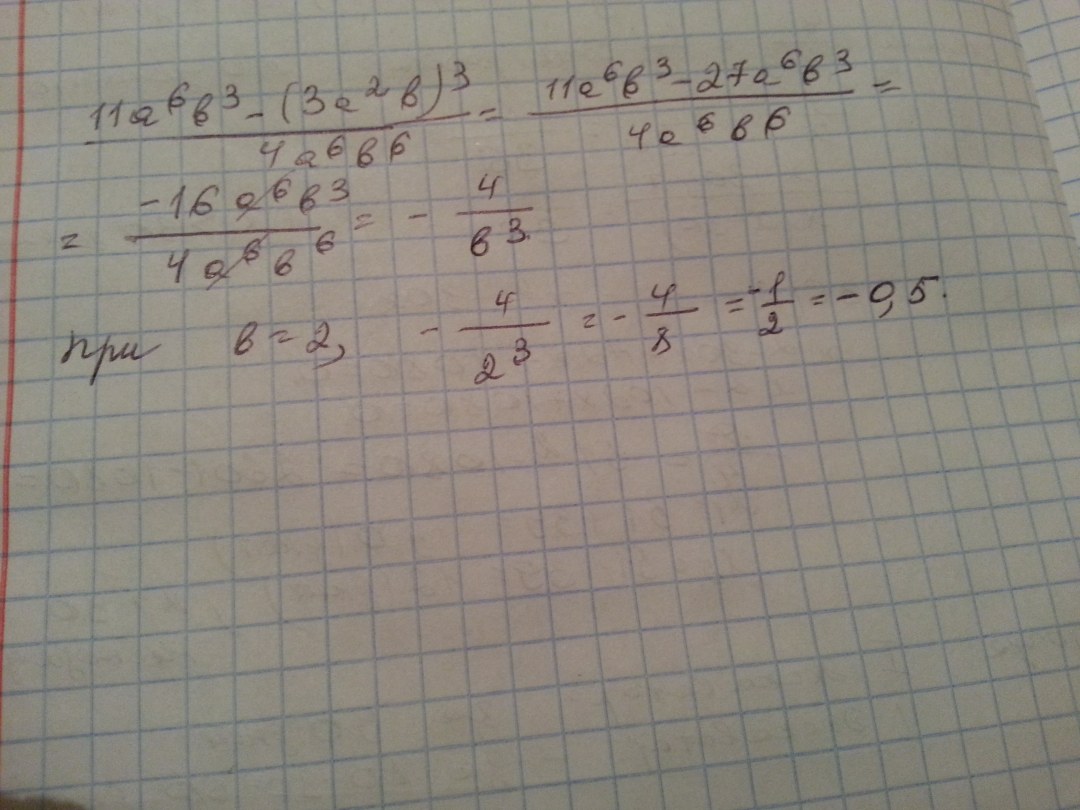 11a⁶b³ - (3a²b)³ / 4a⁶b⁶ = 11a⁶b³ - 27a⁶b³ / 4a⁶b⁶ =
= -16a⁶b³ / 4a⁶b⁶ = - 4 / b³
при b = 2, - 4 / 2³ = - 4 / 8 = - 1 / 2 = - 0,5.